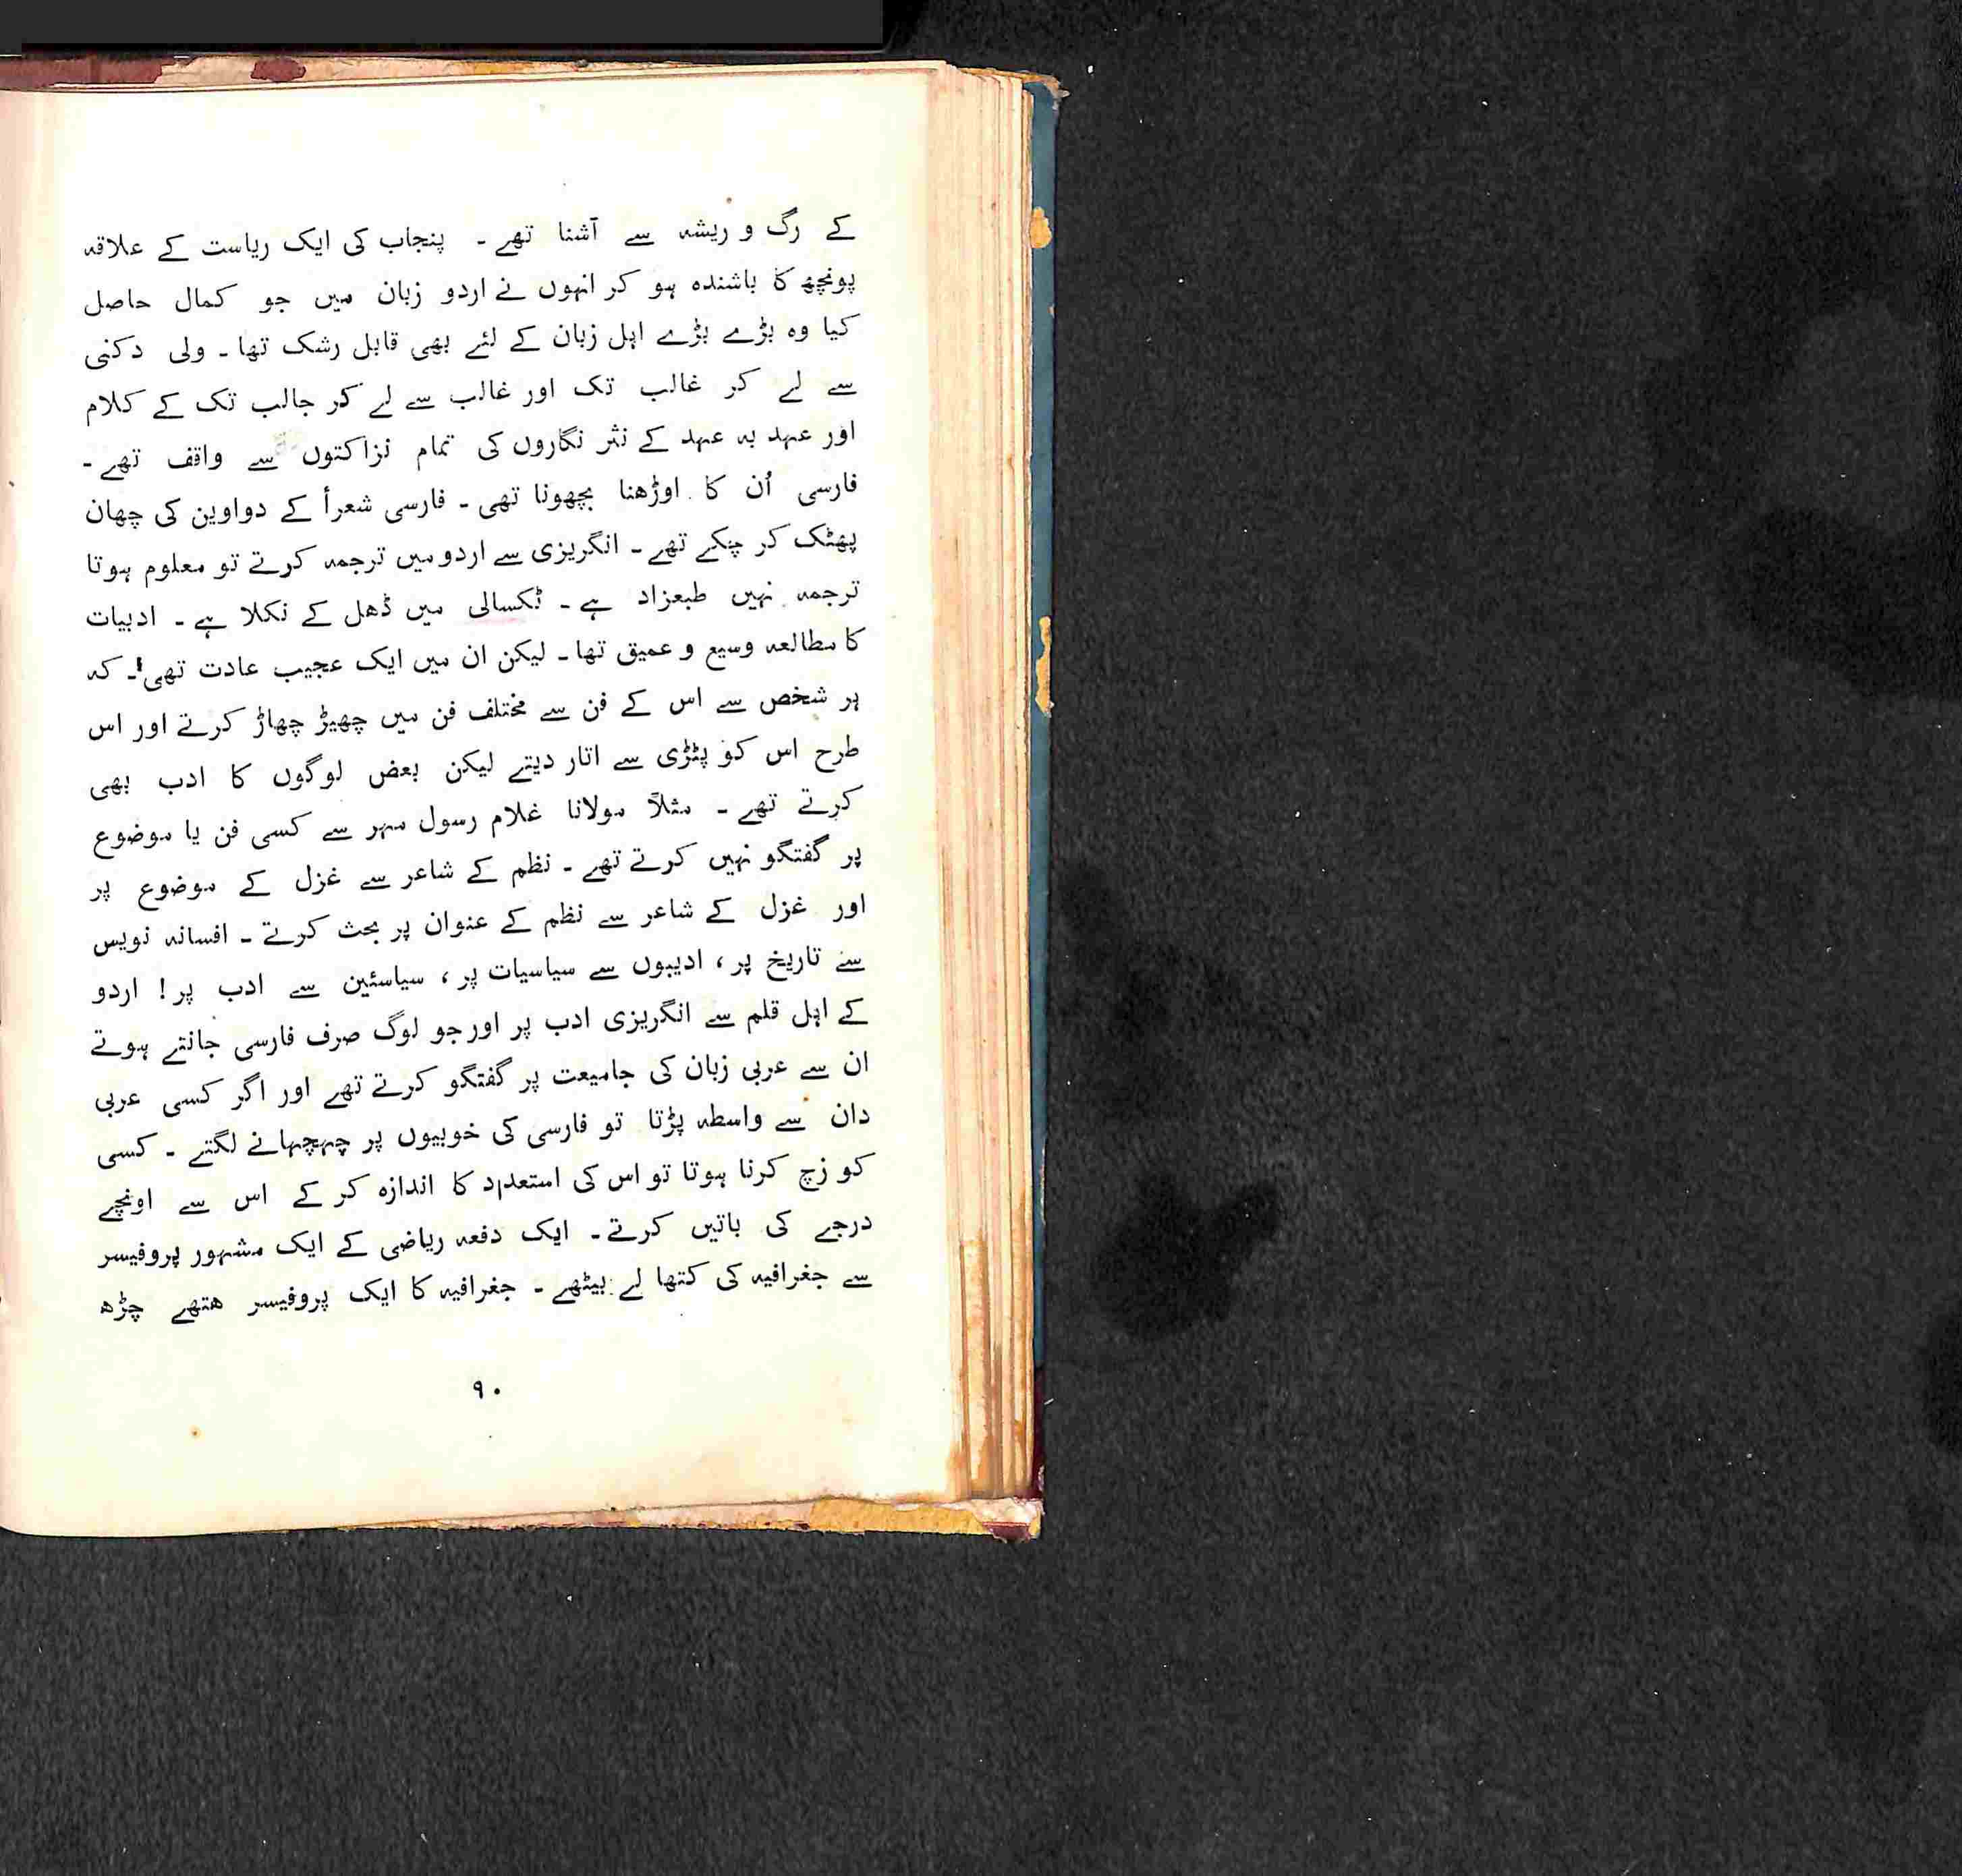 کے رگ و ریشہ سے آشنا تھے ۔ پنجاب کی ایک ریاست کے علاقہ
پونچھ کا باشندہ ہو کر انہوں نے اردو زبان میں جو کمال حاصل
کیا وہ بڑے بڑے اہل زبان کے لئے بھی قابل رشک تھا ۔ ولی دکنی
سے لے کر غالب تک اور غالب سے لے کر جالب تک کے کلام
اور عہد بہ عہد کے نثر نگاروں کی تمام نزاکتوں سے واقف تھے ۔
فارسی اُن کا اوڑھنا بچھونا تھی ۔ فارسی شعرأ کے دواوین کی چھان
پھٹک کر چکے تھے ۔ انگریزی سے اردو میں ترجمہ کرتے تو معلوم ہوتا
ترجمہ نہیں طبعزاد ہے ۔ ٹکسالی میں ڈھل کے نکلا ہے ۔ ادبیات
کا مطالعہ وسیع و عمیق تھا ۔ لیکن ان میں ایک عجیب عادت تھی ۔ کہ
ہر شخص سے اس کے فن سے مختلف فن میں چھیڑ چھاڑ کرتے اور اس
طرح اس کو پٹڑی سے اتار دیتے لیکن بعض لوگوں کا ادب بھی
کرتے تھے ۔ مثلاً مولانا غلام رسول مہر سے کسی فن یا موضوع
پر گفتگو نہیں کرتے تھے ۔ نظم کے شاعر سے غزل کے موضوع پر
اور غزل کے شاعر سے نظم کے عنوان پر بحث کرتے ۔ افسانہ نویس
سے تاریخ پر ، ادیبوں سے سیاسیات پر ، سیاسئین سے ادب پر ! اردو
کے اہل قلم سے انگریزی ادب پر اور جو لوگ صرف فارسی جانتے ہوتے
ان سے عربی زبان کی جامیعت پر گفتگو کرتے تھے اور اگر کسی عربی
دان سے واسطہ پڑتا تو فارسی کی خوبیوں پر چہچہانے لگتے ۔ کسی
کو زچ کرنا ہوتا تو اس کی استعداد کا اندازہ کر کے اس سے اونچے
درجے کی باتیں کرتے ۔ ایک دفعہ ریاضی کے ایک مشہور پروفیسر
سے جغرافیہ کی کتھا لے بیٹھے ۔ جغرافیہ کا ایک پروفیسر ھتھے چڑھ
۹۰